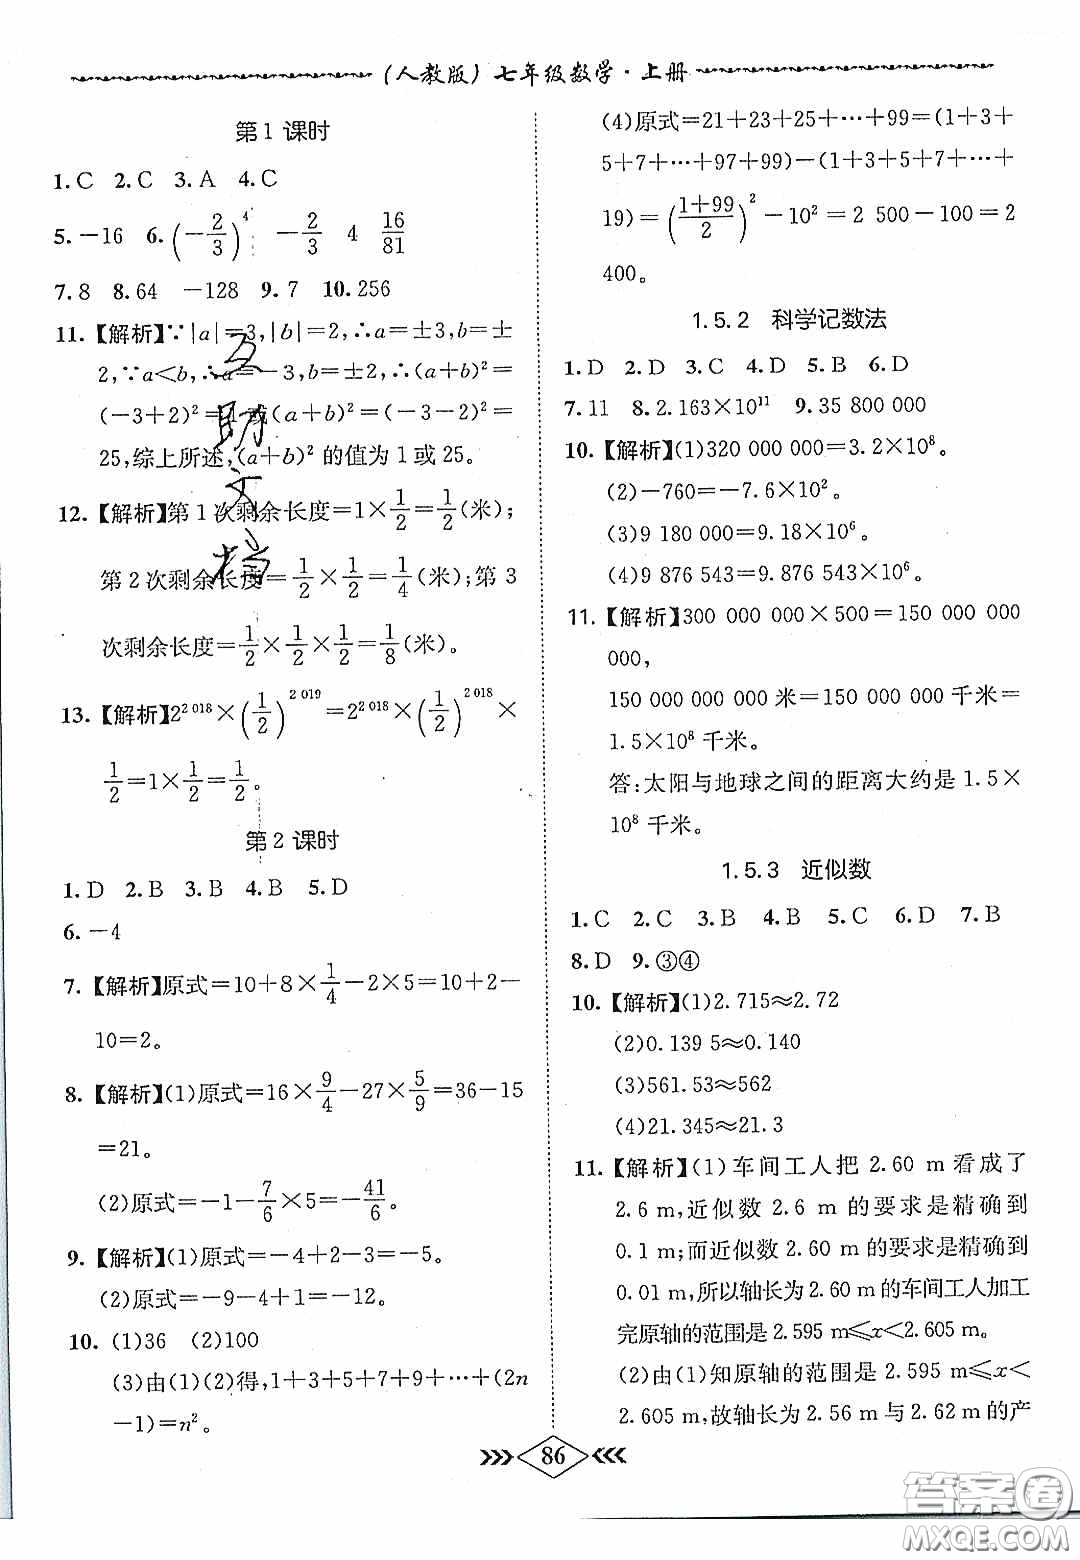 (人教版)七年级数学·上册
第1课时
1.C 2.C 3.A 4.C
5.-16 6.(-2/3)^4 -2/3 4 16/81
7.8 8.64 -128 9.7 10.256
11.【解析】∵|a|=3,|b|=2,∴a=±3,b=±
2,∵a<b,∴a=-3,b=±2,∴(a+b)²=
(-3+2)²=1或(a+b)²=(-3-2)²=
25,综上所述,(a+b)²的值为1或25。
12.【解析】第1次剩余长度=1×1/2=1/2(米);
第2次剩余长度=1/2×1/2=1/4(米);第3
次剩余长度=1/2×1/2×1/2=1/8(米)。
13.【解析】2^2 018×(1/2)^2 019=2^2 018×(1/2)^2 018×
1/2=1×1/2=1/2。
第2课时
1.D 2.B 3.B 4.B 5.D
6.-4
7.【解析】原式=10+8×1/4-2×5=10+2-
10=2。
8.【解析】(1)原式=16×9/4-27×5/9=36-15
=21。
(2)原式=-1-7/6×5=-41/6。
9.【解析】(1)原式=-4+2-3=-5。
(2)原式=-9-4+1=-12。
10.(1)36 (2)100
(3)由(1)(2)得,1+3+5+7+9+…+(2n
-1)=n²。
(4)原式=21+23+25+…+99=(1+3+
5+7+…+97+99)-(1+3+5+7+…+
19)=((1+99)/2)²-10²=2 500-100=2
400。
1.5.2 科学记数法
1.D 2.D 3.C 4.D 5.B 6.D
7.11 8.2.163×10¹¹ 9.35 800 000
10.【解析】(1)320 000 000=3.2×10⁸。
(2)-760=-7.6×10²。
(3)9 180 000=9.18×10⁶。
(4)9 876 543=9.876 543×10⁶。
11.【解析】300 000 000×500=150 000 000
000,
150 000 000 000米=150 000 000千米=
1.5×10⁸千米。
答:太阳与地球之间的距离大约是1.5×
10⁸千米。
1.5.3 近似数
1.C 2.C 3.B 4.B 5.C 6.D 7.B
8.D 9.③④
10.【解析】(1)2.715≈2.72
(2)0.139 5≈0.140
(3)561.53≈562
(4)21.345≈21.3
11.【解析】(1)车间工人把2.60 m看成了
2.6 m,近似数2.6 m的要求是精确到
0.1 m;而近似数2.60 m的要求是精确到
0.01 m,所以轴长为2.60 m的车间工人加工
完原轴的范围是2.595 m≤x<2.605 m。
(2)由(1)知原轴的范围是2.595 m≤x<
2.605 m,故轴长为2.56 m与2.62 m的产
86
互助文档
答案卷
MXQE.COM